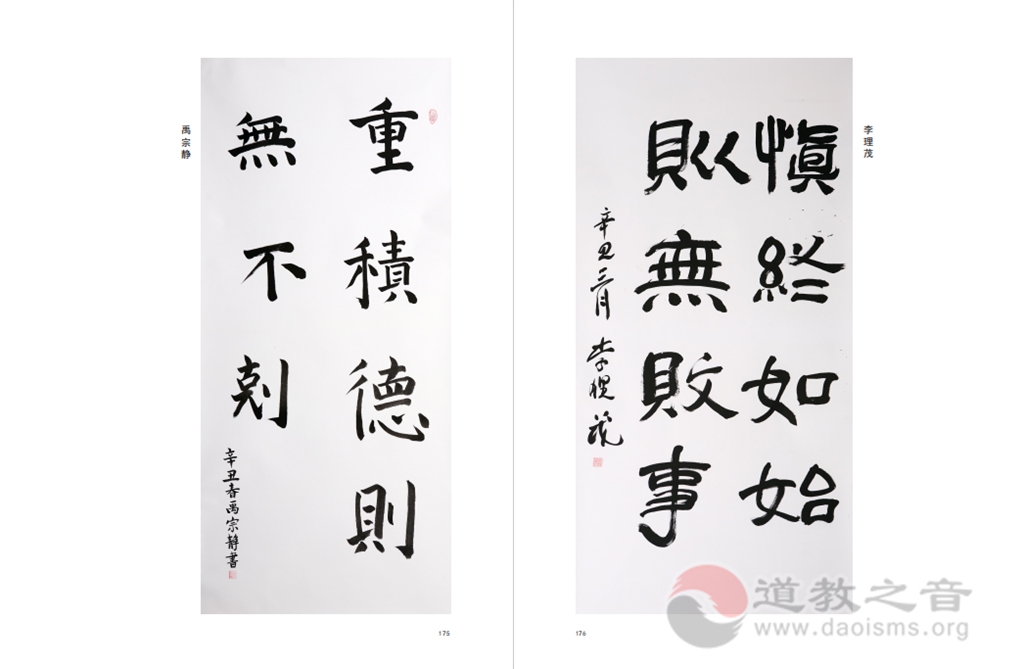 禹宗静
重積德則
無不剋
辛丑春禹宗靜書
175
李理茂
愼終如始
則無敗事
辛丑三月
176
道教之音
www.daoisms.org